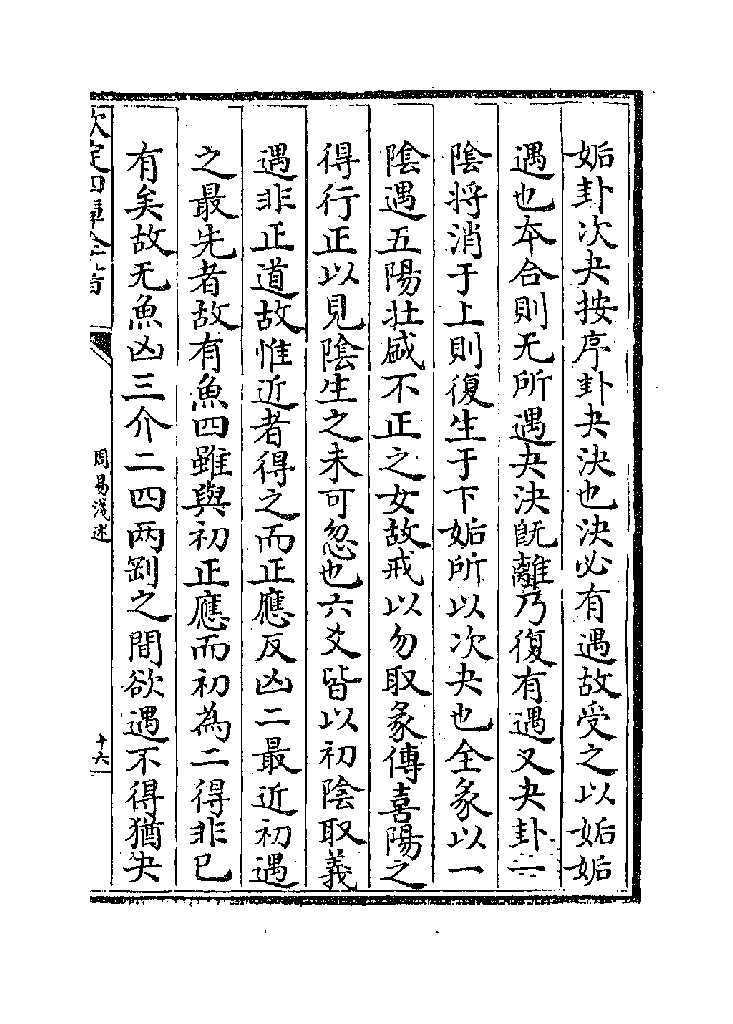 姤卦次夬按序卦夬決也決必有遇故受之以姤姤
遇也本合則无所遇夬決既離乃復有遇又夬卦一
陰將消于上則復生于下姤所以次夬也全彖以一
陰遇五陽壯盛不正之女故戒以勿取彖傳喜陽之
得行正以見陰生之未可忽也六爻皆以初陰取義
遇非正道故惟近者得之而正應反凶二最近初遇
之最先者故有魚四雖與初正應而初為二得非已
有矣故无魚凶三介二四兩剛之間欲遇不得猶夬
欽定四庫全書
周易淺述
十六